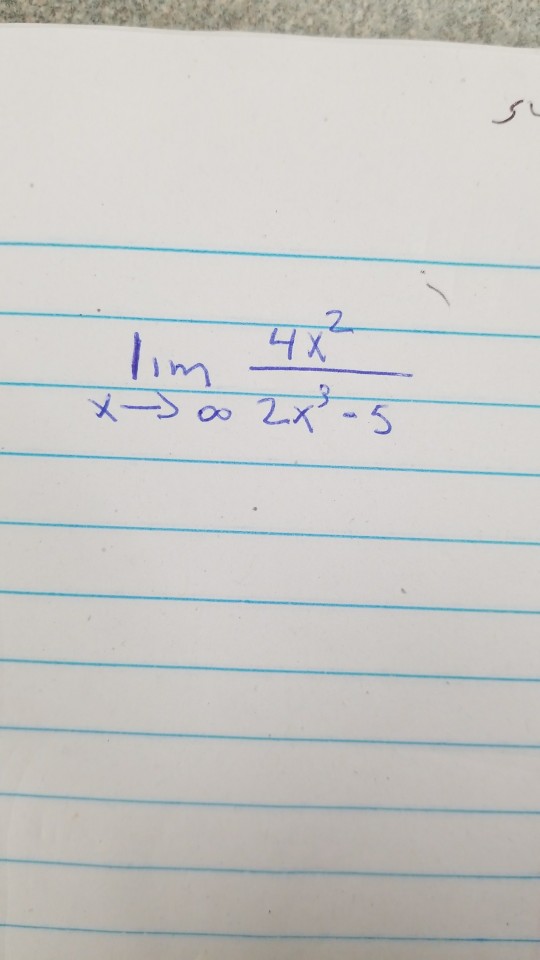 lim 4x²
x → ∞ 2x³ - 5